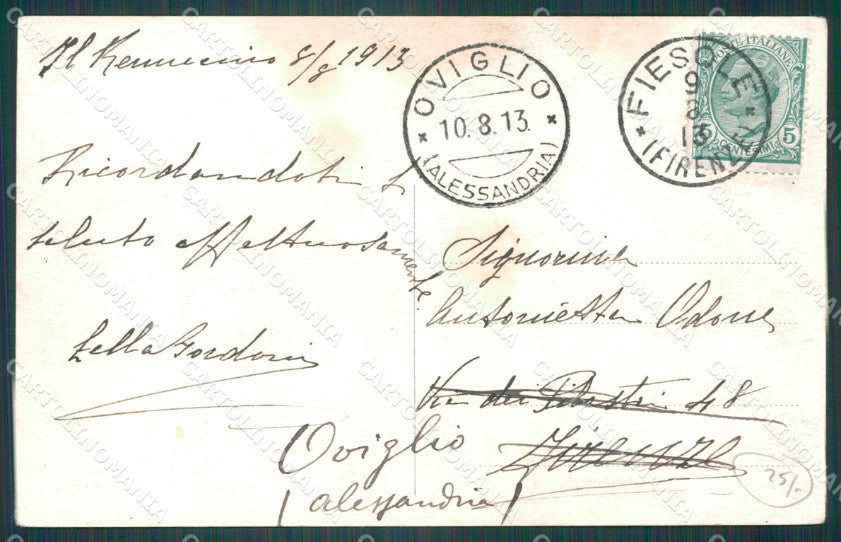 Il 8/8 1913
Ricordandoti ti
saluto affettuosamente.
OVIGLIO
10.8.13.
(ALESSANDRIA)
FIESOLE
9
8
13
(FIRENZE)
POSTE ITALIANE
5
CENTESIMI
Signorina
Antonietta Odone
Via dei Pilastri 48
Firenze
Oviglio
(Alessandria)
25/-
CARTOLINOMANIA